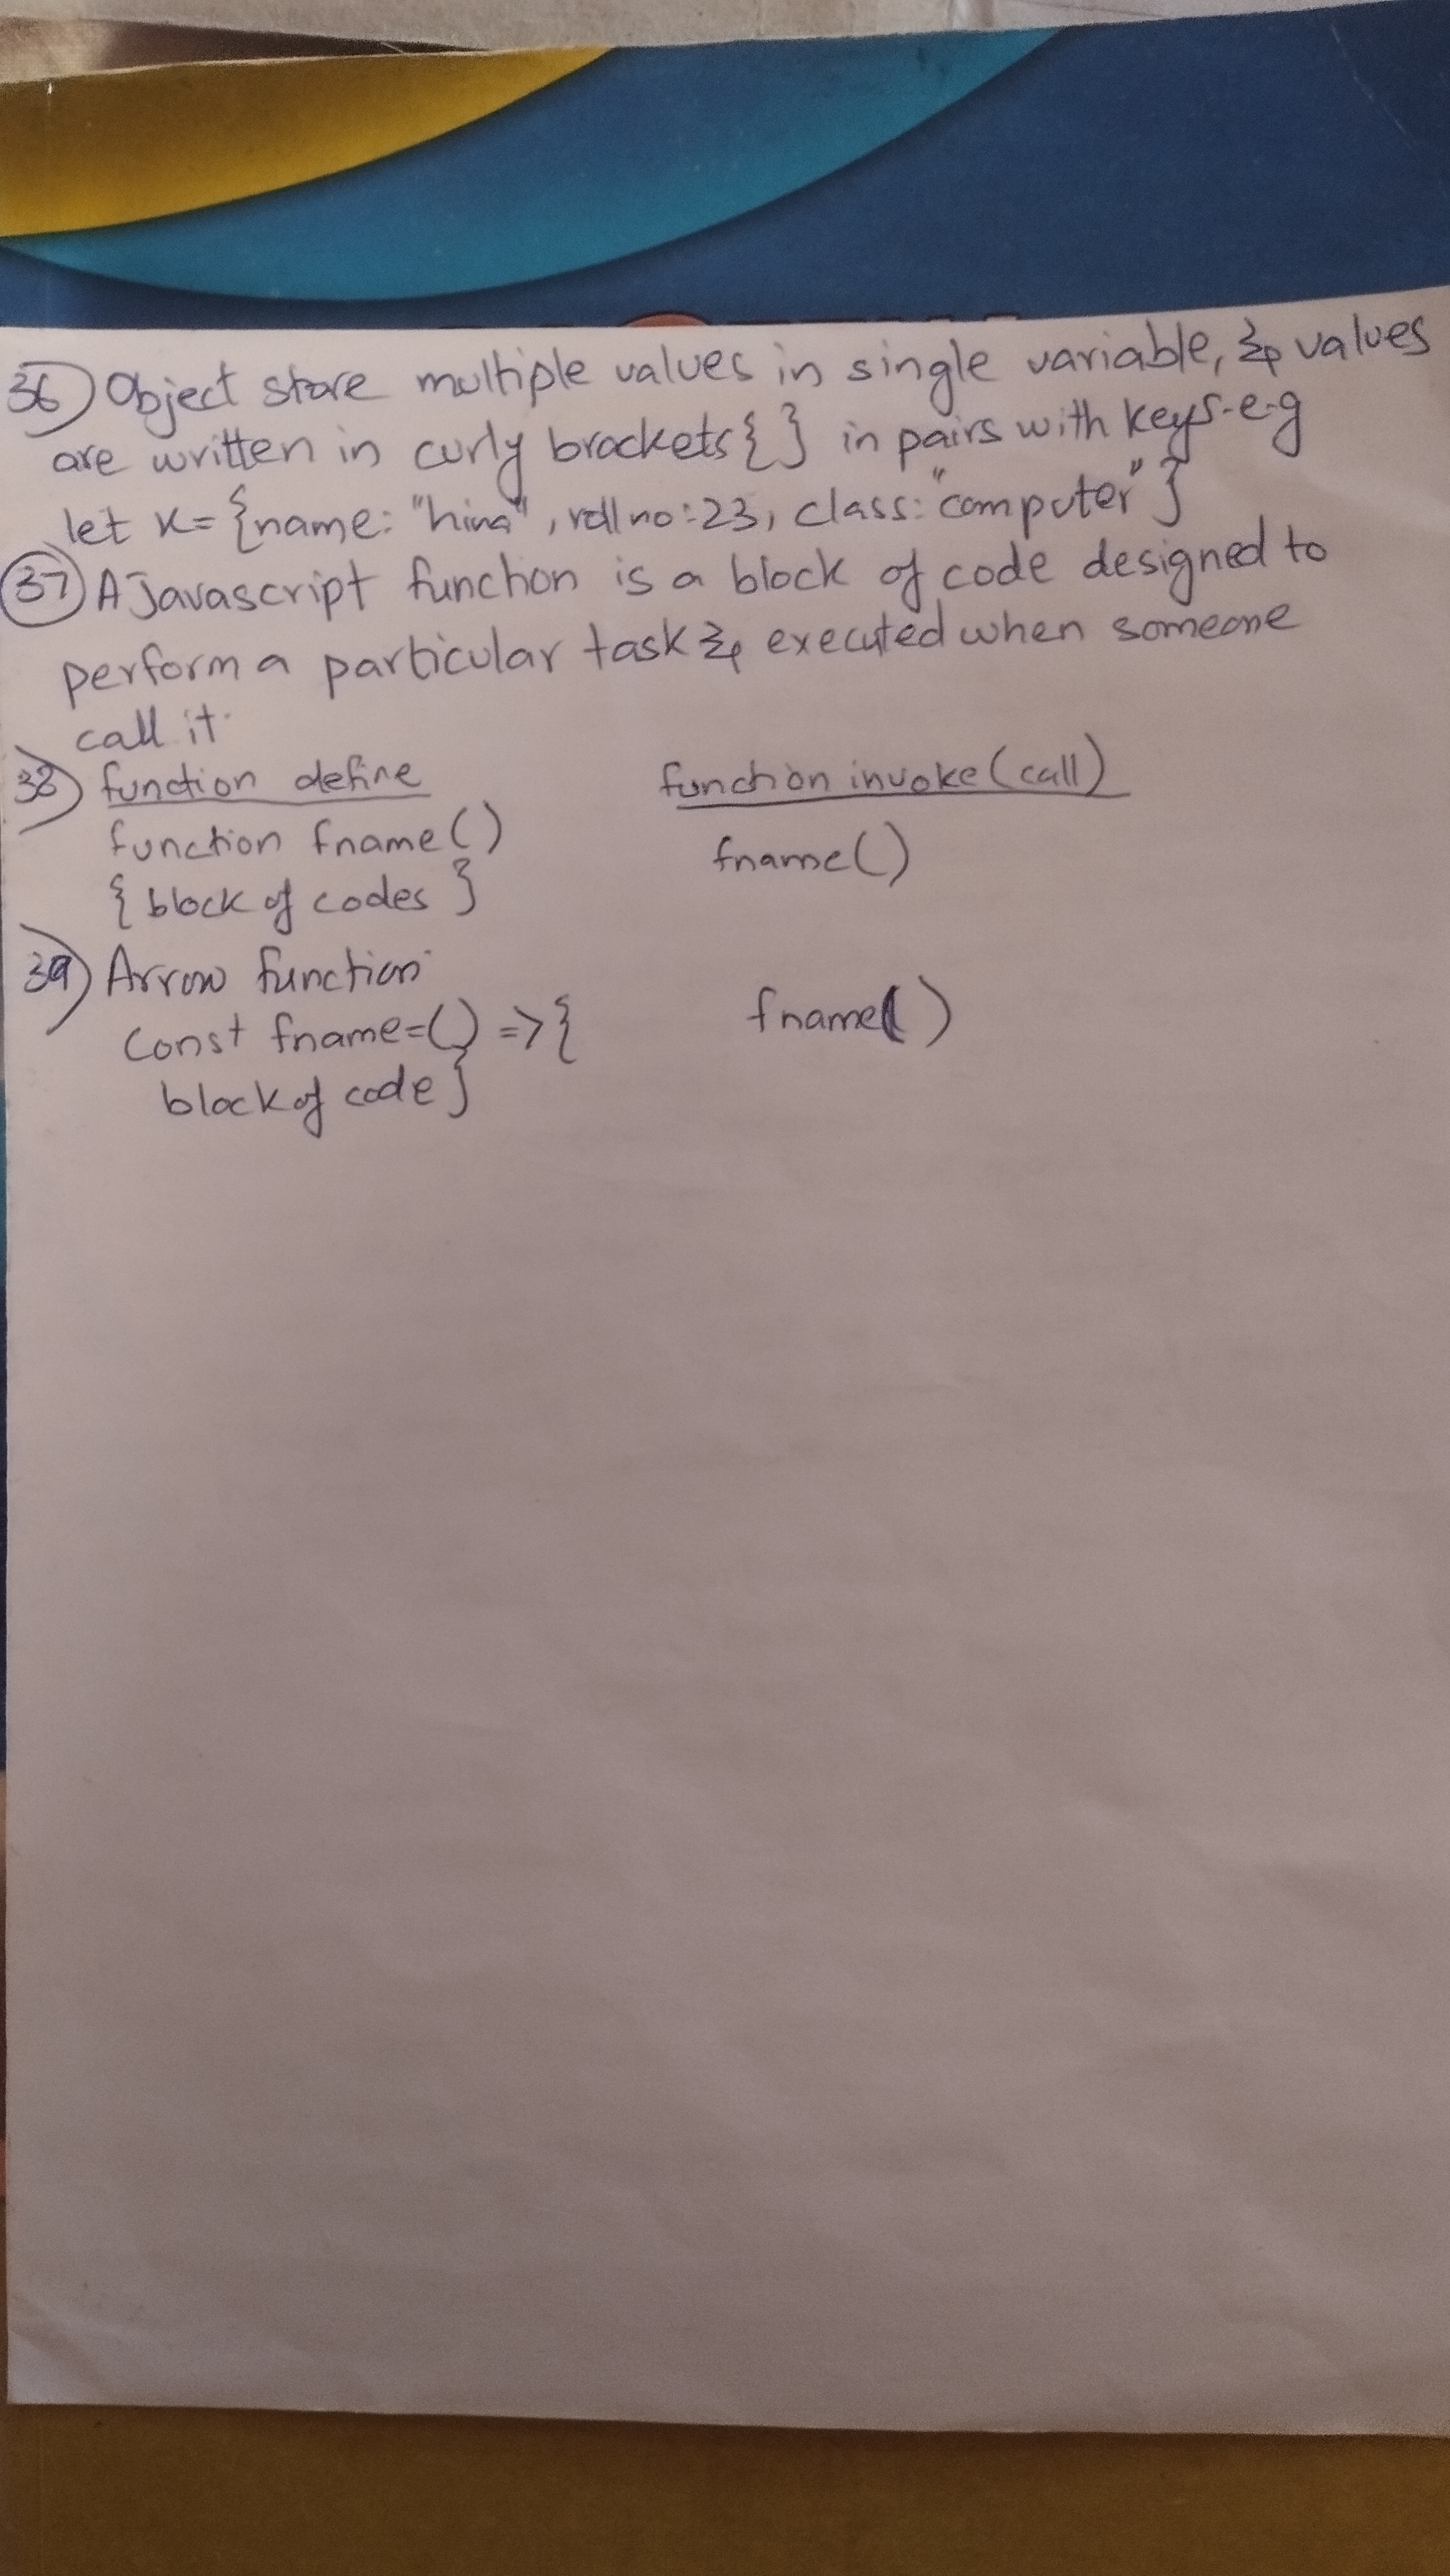 36) Object store multiple values in single variable, & values
are written in curly brackets { } in pairs with keys. e.g
let x = {name: "hina", roll no: 23, class: "computer" }
37) A Javascript function is a block of code designed to
perform a particular task & executed when someone
call it.
38) function define function invoke (call)
function fname() fname()
{ block of codes }
39) Arrow function
const fname=() => { fname()
block of code }